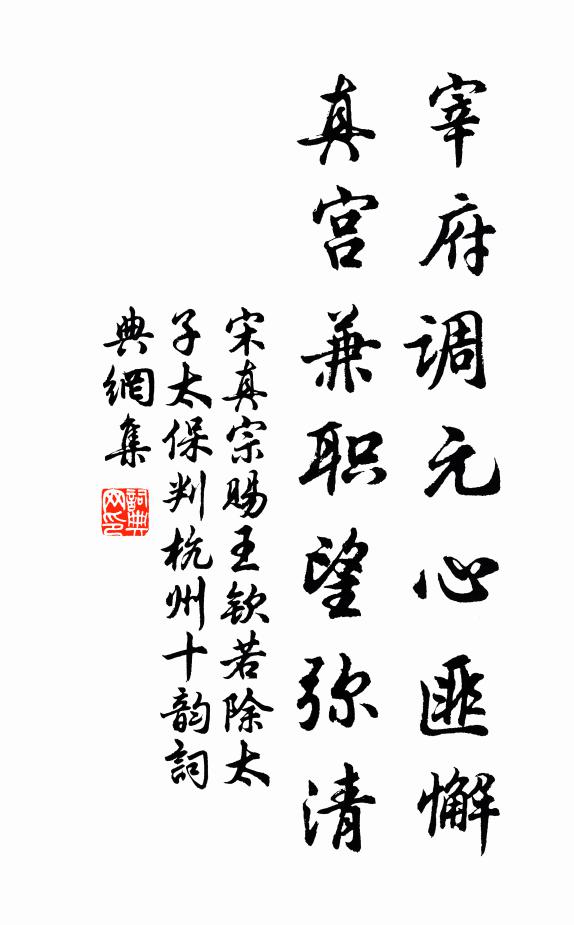 宰府调元心匪懈
真宫兼职望弥清
宋真宗赐王钦若除太
子太保判杭州十韵詞
典網集
詞典网印